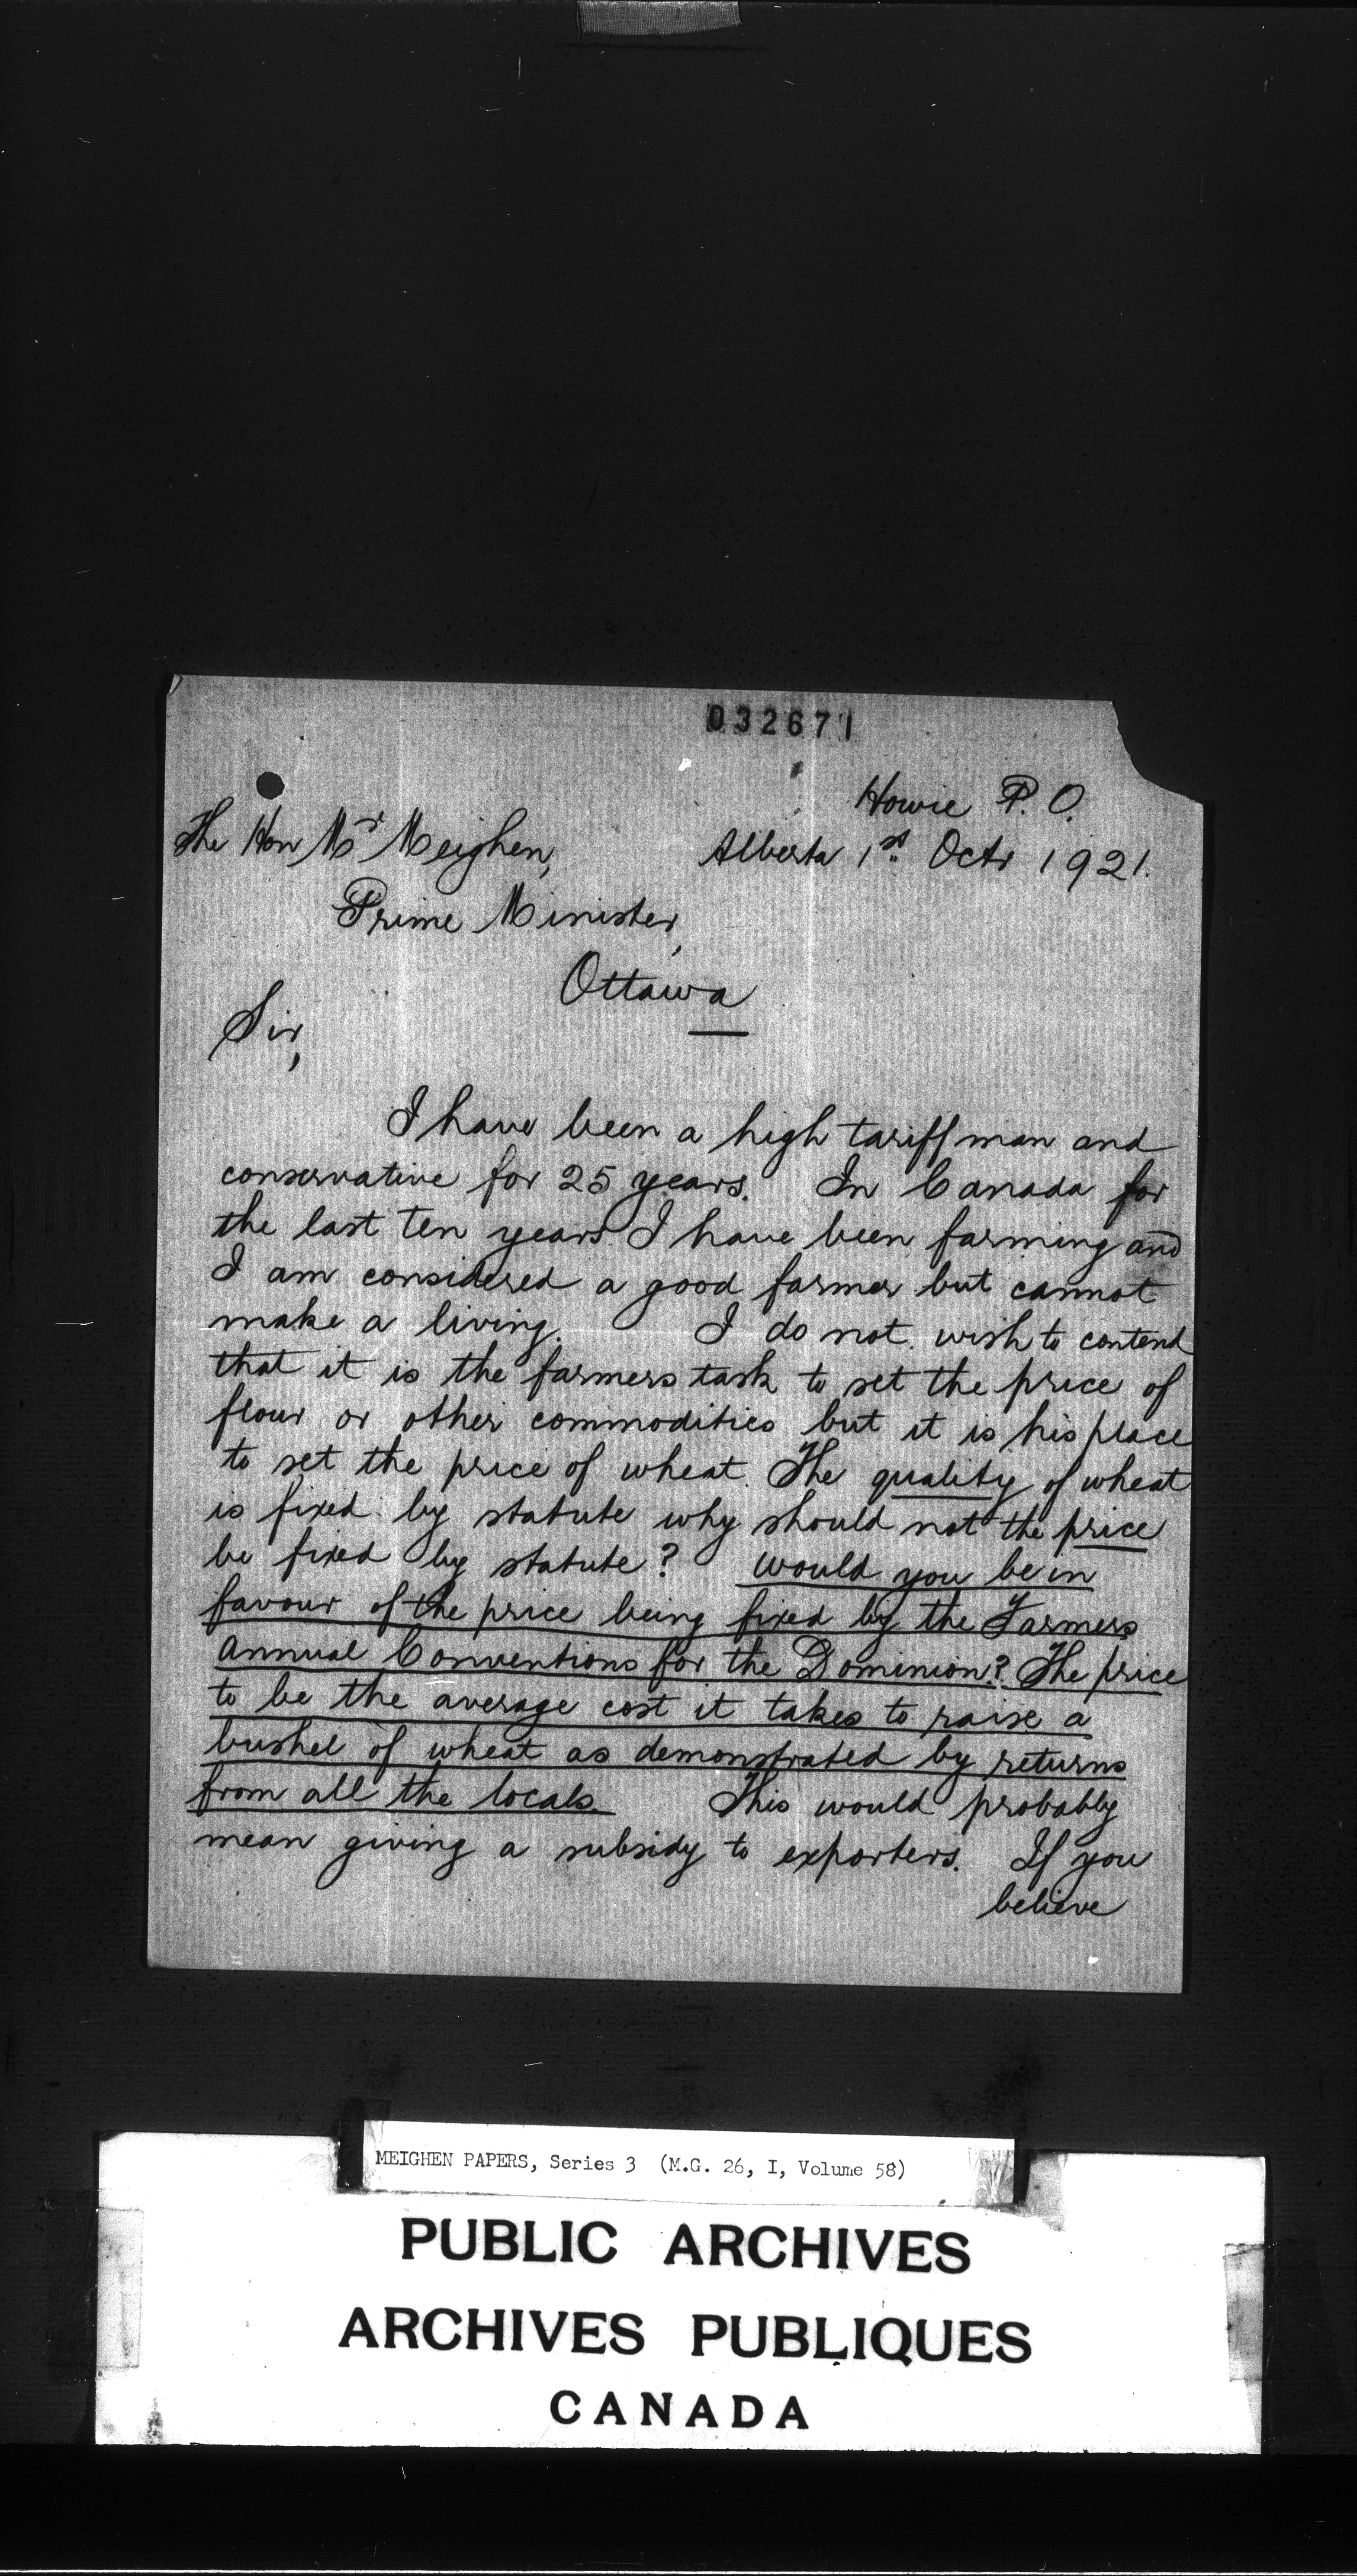 032671
Howie P. O.
The Hon Mr Meighen,
Alberta 1st Octr 1921.
Prime Minister,
Ottawa
Sir,
I have been a high tariff man and
conservative for 25 years. In Canada for
the last ten years I have been farming and
I am considered a good farmer but cannot
make a living. I do not wish to contend
that it is the farmers task to set the price of
flour or other commodities but it is his place
to set the price of wheat. The quality of wheat
is fixed by statute why should not the price
be fixed by statute? Would you be in
favour of the price being fixed by the Farmers
Annual Conventions for the Dominion? The price
to be the average cost it takes to raise a
bushel of wheat as demonstrated by returns
from all the locals. This would probably
mean giving a subsidy to exporters. If you
believe
MEIGHEN PAPERS, Series 3 (M.G. 26, I, Volume 58)
PUBLIC ARCHIVES
ARCHIVES PUBLIQUES
CANADA